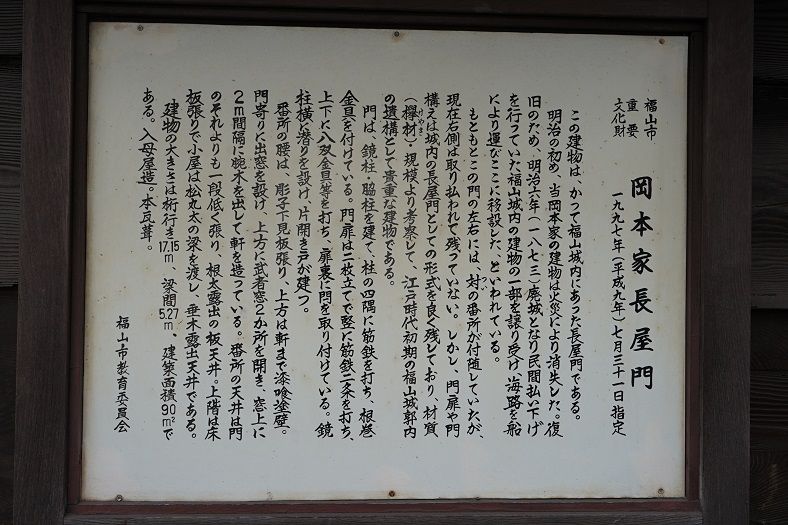 福山市
重要
文化財
岡本家長屋門
一九九七年(平成九年)七月三十一日指定
この建物は、かつて福山城内にあった長屋門である。
明治の初め、当岡本家の建物は火災により消失した。復
旧のため、明治六年(一八七三)廃城となり民間払い下げ
を行っていた福山城内の建物の一部を譲り受け、海路を船
により運びここに移設した、といわれている。
もともとこの門の左右には、対の番所が付随していたが、
現在右側は取り払われて残っていない。しかし、門扉や門
構えは城内の長屋門としての形式を良く残しており、材質
(欅材)規模より考察して、江戸時代初期の福山城郭内
の遺構として貴重な建物である。
門は、鏡柱、脇柱を建て、柱の四隅に筋鉄を打ち、根巻
金具を付けている。門扉は二枚立てで竪に筋鉄二条を打ち、
上下に八双金具等を打ち、扉裏に閂を取り付けている。鏡
柱横に潜りを設け、片開き戸が建つ。
番所の腰は、彫子下見板張り、上方は軒まで漆喰塗壁。
門寄りに出窓を設け、上方に武者窓2か所を開き、窓上に
2m間隔に腕木を出して軒を造っている。番所の天井は門
のそれよりも一段低く張り、根太露出の板天井。上階は床
板張りで小屋は松丸太の梁を渡し、垂木露出天井である。
建物の大きさは桁行き17.15m、梁間5.27m、建築面積90m²で
ある。入母屋造。本瓦葺。
福山市教育委員会